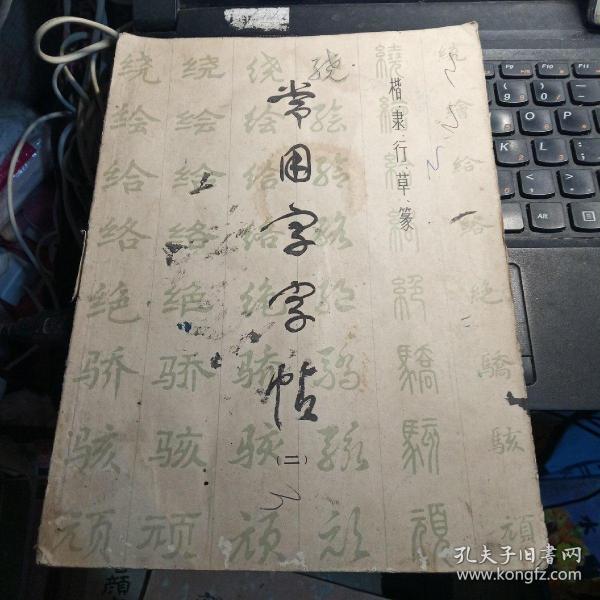 常用字字帖
(二)
楷·隶·行·草·篆
绕 绕 绕 绕 繞 繞
绘 绘 绘 绘 繪 繪
给 给 给 给 給 給
络 络 络 络 絡 絡
绝 绝 绝 绝 絕 絕
骄 骄 骄 骄 驕 驕
骇 骇 骇 骇 駭 駭
顽 顽 顽 顽 頑 頑
孔夫子旧书网
www.kongfz.com